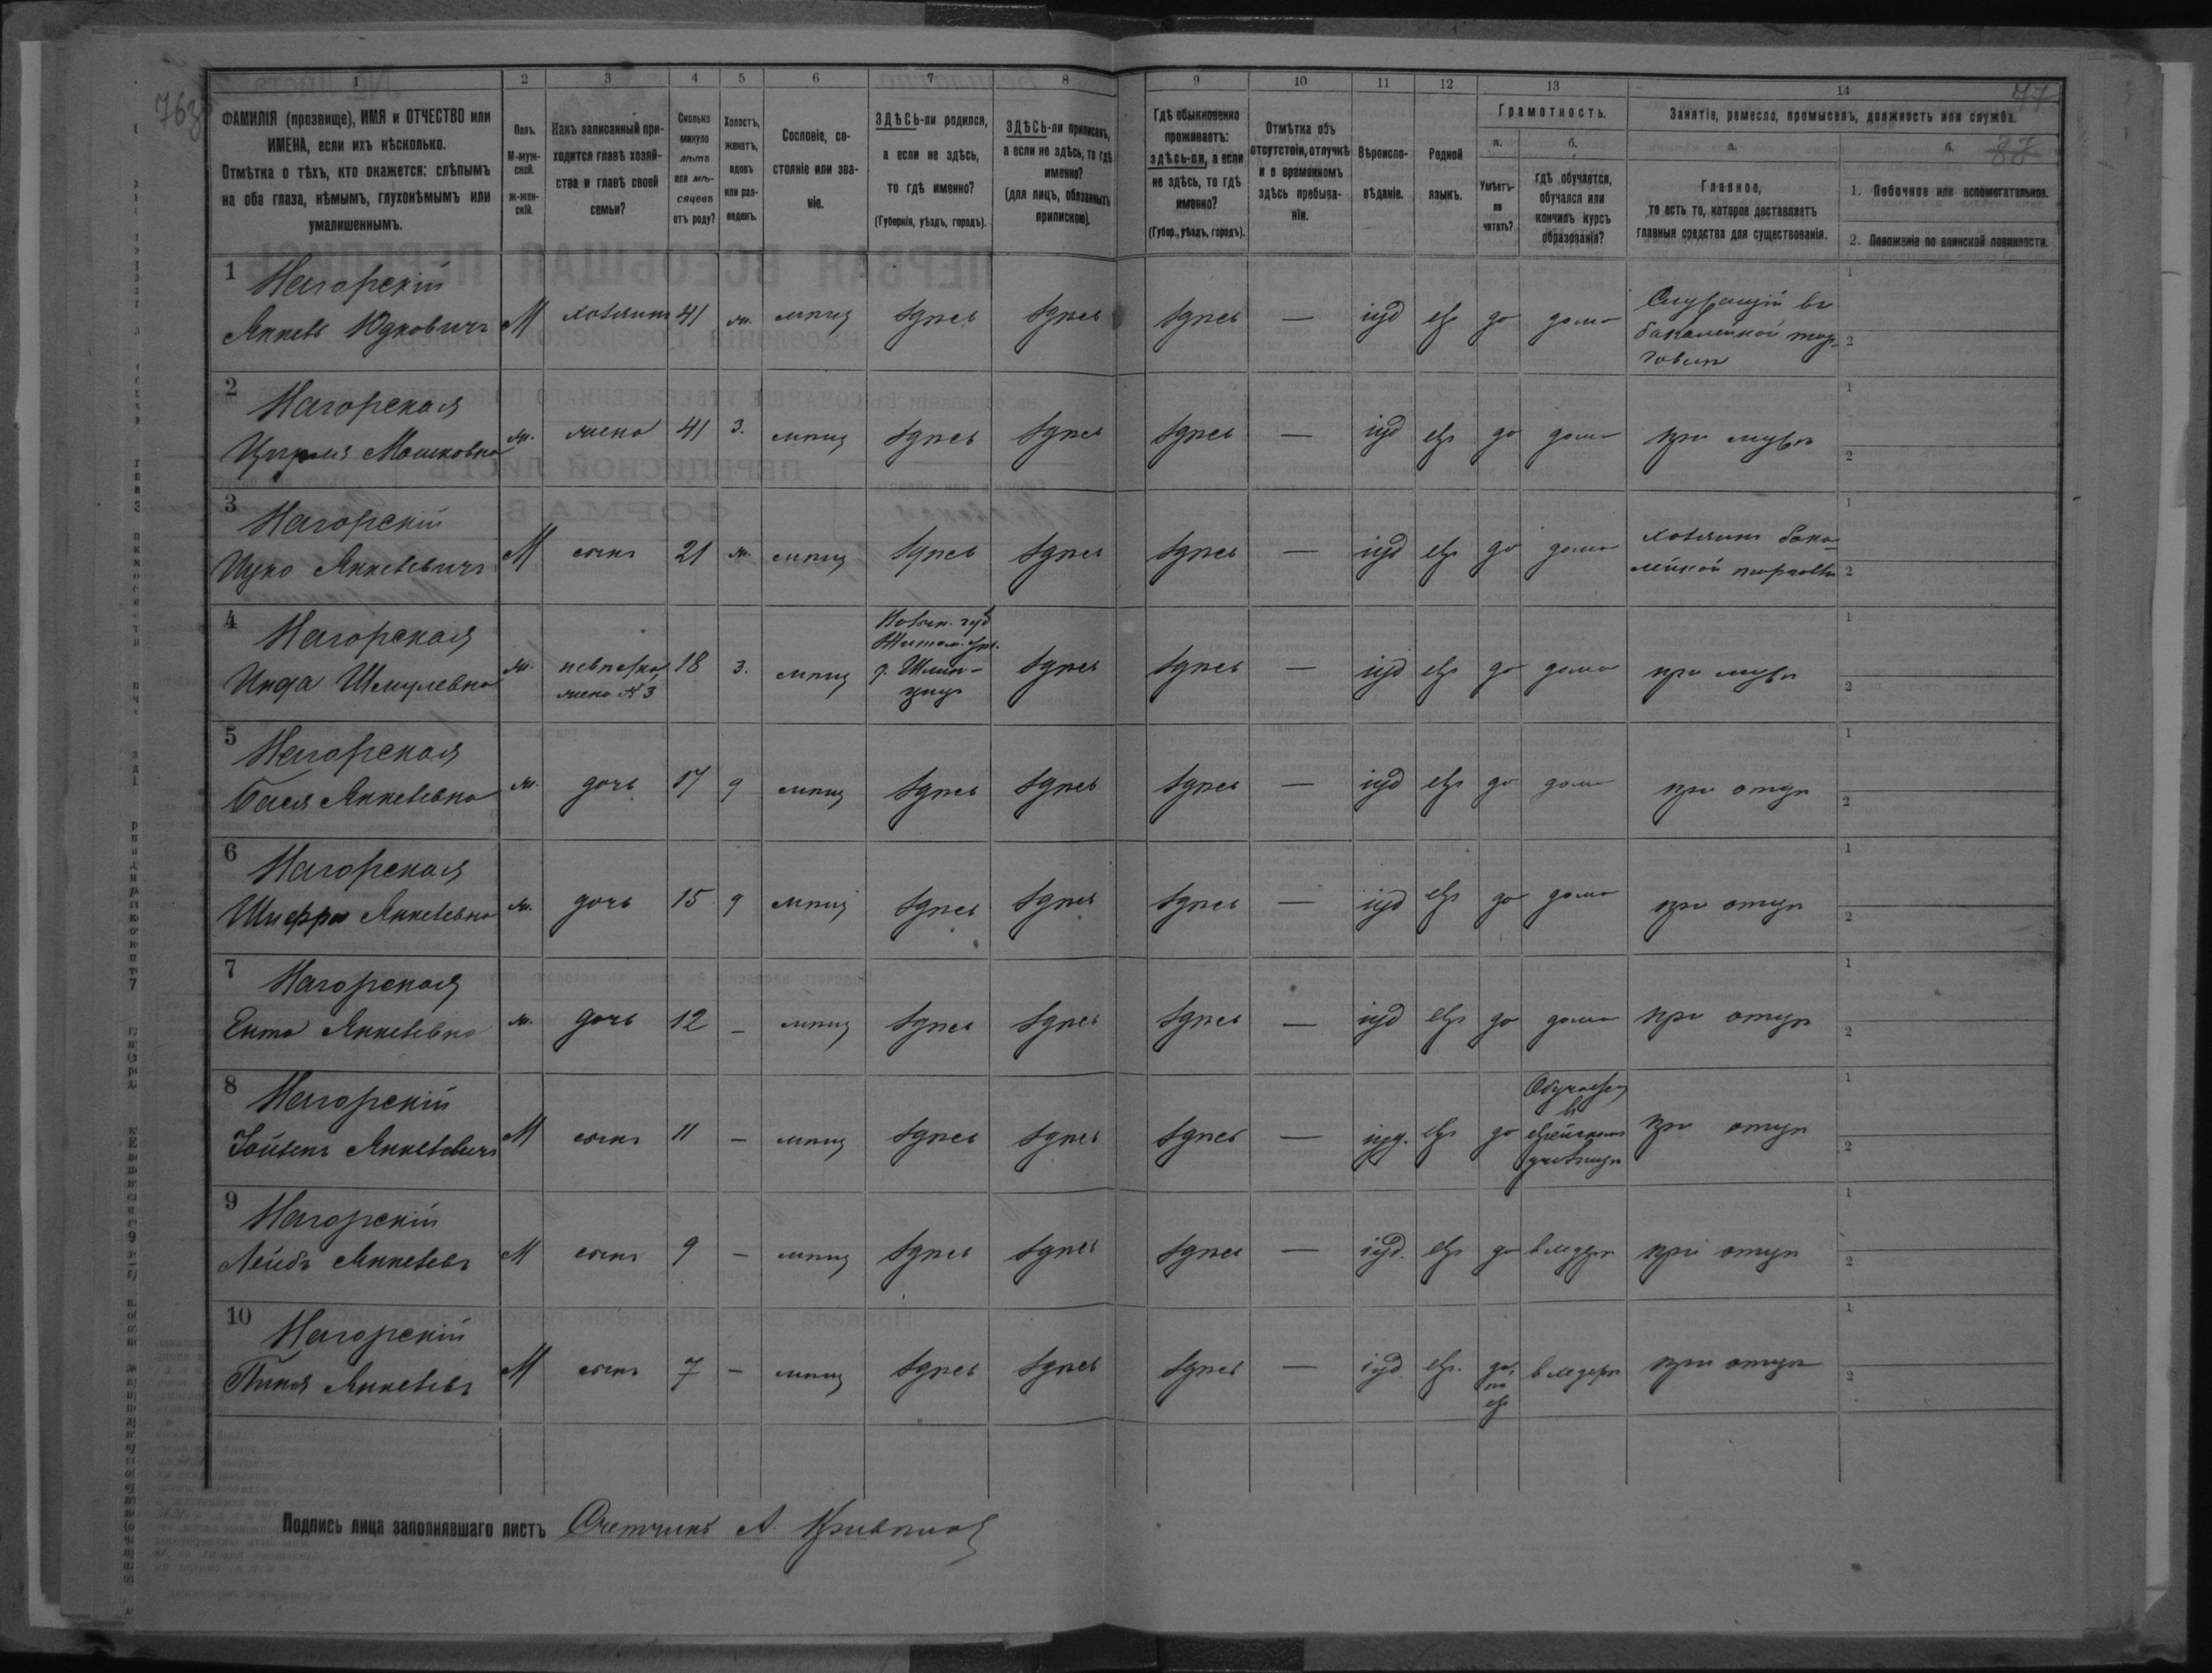 763
77
87
1 2 3 4 5 6 7 8 9 10 11 12 13 14
ФАМИЛІЯ (прозвище), ИМЯ и ОТЧЕСТВО или
ИМЕНА, если ихъ нѣсколько.
Отмѣтка о тѣхъ, кто окажется: слѣпымъ
на оба глаза, нѣмымъ, глухонѣмымъ или
умалишеннымъ.
Полъ.
М-муж-
ской.
ж-жен-
скій.
Какъ записанный при-
ходится главѣ хозяй-
ства и главѣ своей
семьи?
Сколько
минуло
лѣтъ
или мѣ-
сяцевъ
отъ роду?
Холостъ,
женатъ,
вдовъ
или раз-
веденъ.
Сословіе, со-
стояніе или зва-
ніе.
ЗДѢСЬ-ли родился,
а если не здѣсь,
то гдѣ именно?
(Губернія, уѣздъ, городъ).
ЗДѢСЬ-ли приписанъ,
а если не здѣсь, то гдѣ
именно?
(для лицъ, обязанныхъ
припискою).
Гдѣ обыкновенно
проживаетъ:
здѣсь-ли, а если
не здѣсь, то гдѣ
именно?
(Губер., уѣздъ, городъ).
Отмѣтка объ
отсутствіи, отлучкѣ
и о временномъ
здѣсь пребыва-
ніи.
Вѣроиспо-
вѣданіе.
Родной
языкъ.
Грамотность.
а.
Умѣетъ-
ли
читать?
б.
Гдѣ обучается,
обучался или
кончилъ курсъ
образованія?
Занятіе, ремесло, промыселъ, должность или служба.
а.
Главное,
то есть то, которое доставляетъ
главныя средства для существованія.
б.
1. Побочное или вспомогательное.
2. Положеніе по воинской повинности.
1 Нагорскій
Янкель Юдковичъ М хозяинъ 41 ж. мѣщ здѣсь здѣсь здѣсь — іуд евр да дома
Служащій въ
бакалейной тор-
говлѣ
1
2
2 Нагорская
Мошковна ж. жена 41 З. мѣщ здѣсь здѣсь здѣсь — іуд евр да дома при мужѣ
1
2
3 Нагорскій
Ицко Янкелевичъ М сынъ 21 ж. мѣщ здѣсь здѣсь здѣсь — іуд евр да дома
хозяинъ бака-
лейной торговли
1
2
4 Нагорская
Инда Шмулевна ж. невѣстка,
жена №3
18 З. мѣщ
Волын. губ
Житом. у.
здѣсь здѣсь — іуд евр да дома при мужѣ
1
2
5 Нагорская
Бася Янкелевна ж. дочь 17 д мѣщ здѣсь здѣсь здѣсь — іуд евр да дома при отцѣ
1
2
6 Нагорская
Шифра Янкелевна ж. дочь 15 д мѣщ здѣсь здѣсь здѣсь — іуд евр да дома при отцѣ
1
2
7 Нагорская
Ента Янкелевна ж. дочь 12 – мѣщ здѣсь здѣсь здѣсь — іуд евр да дома при отцѣ
1
2
8 Нагорскій
Янкелевичъ М сынъ 11 – мѣщ здѣсь здѣсь здѣсь — іуд. евр да
Обучается
въ
еврейскомъ
училищѣ
при отцѣ
1
2
9 Нагорскій
Лейбъ Янкелевъ М сынъ 9 – мѣщ здѣсь здѣсь здѣсь — іуд. евр да в хедерѣ при отцѣ
1
2
10 Нагорскій
Пиня Янкелевъ М сынъ 7 – мѣщ здѣсь здѣсь здѣсь — іуд евр. да,
по
евр
в хедерѣ при отцѣ
1
2
Подпись лица заполнявшаго листъ Счетчикъ А.